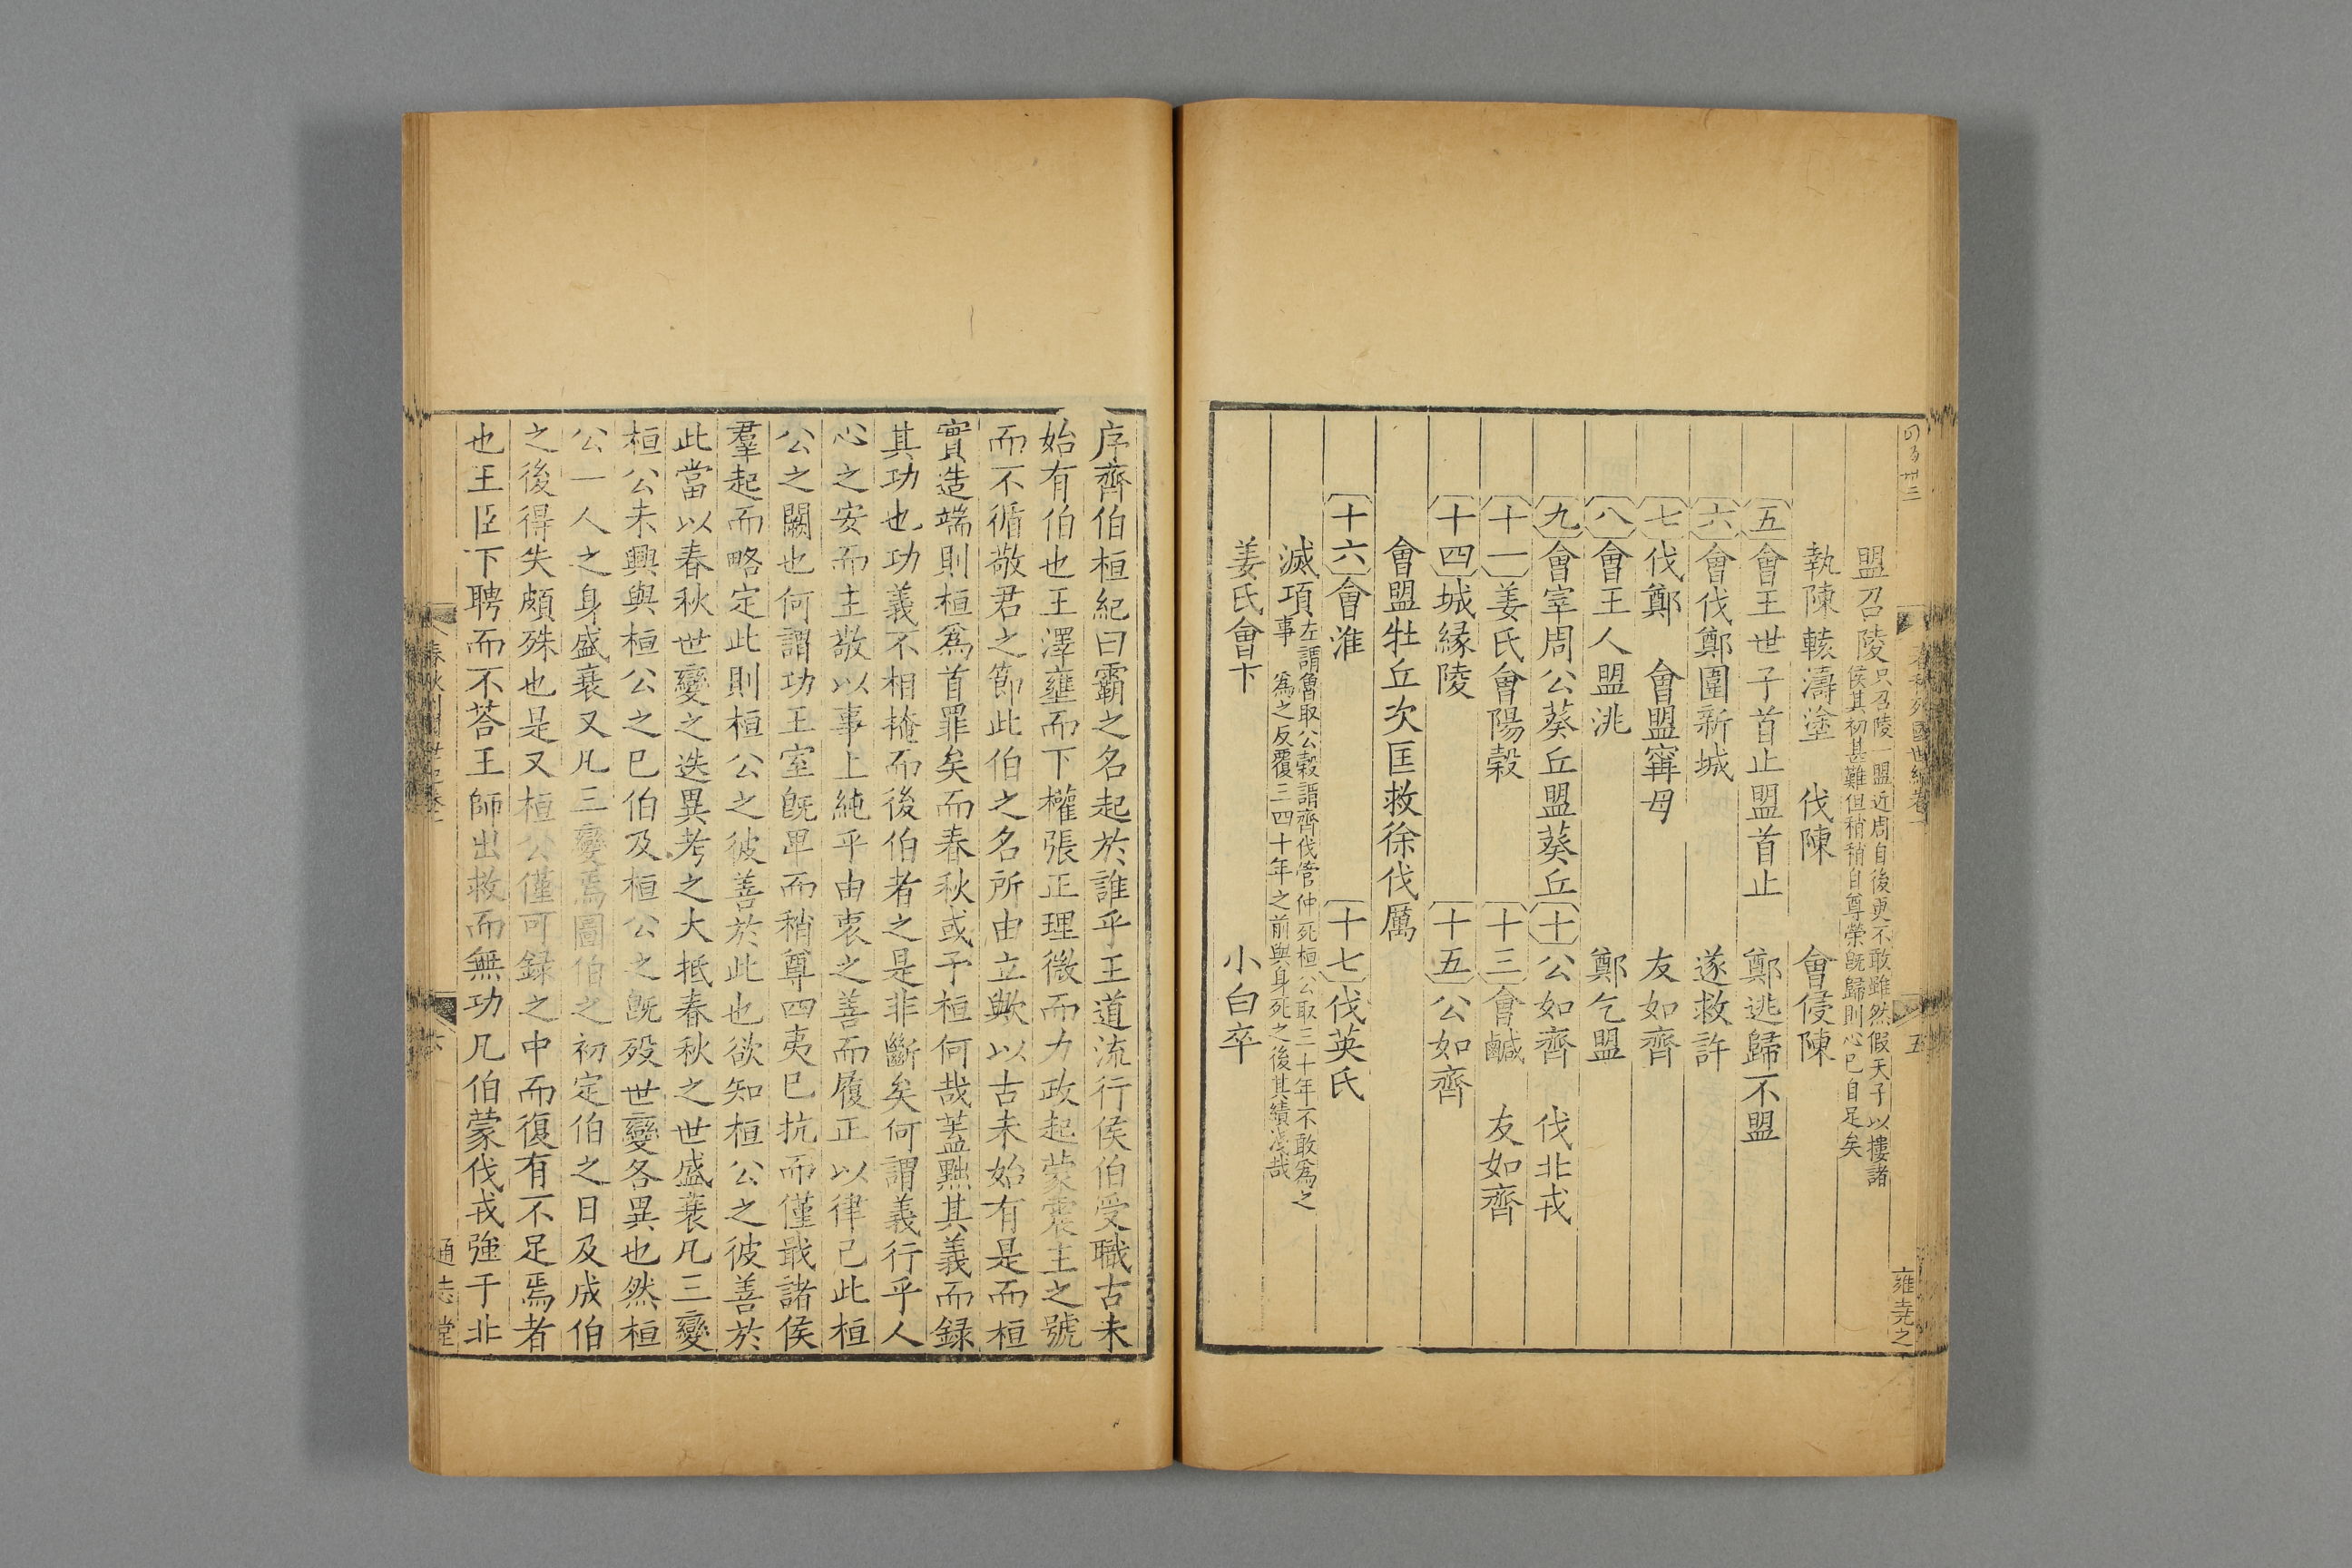 盟召陵只召陵一盟近周自後更不敢雖然假天子以摟諸
侯其初甚難但稍稍自尊榮旣歸則心已自足矣
執陳轅濤塗 伐陳 會侵陳
五 會王世子首止盟首止 鄭逃歸不盟
六 會伐鄭圍新城 遂救許
七 伐鄭 會盟甯母 友如齊
八 會王人盟洮 鄭乞盟
九 會宰周公葵丘盟葵丘 十 公如齊 伐北戎
十一 姜氏會陽穀 十三 會鹹 友如齊
十四 城緣陵 十五 公如齊
會盟牡丘次匡救徐伐厲
十六 會淮 十七 伐英氏
滅項左謂魯取公榖謂齊伐管仲死桓公取三十年不敢爲之
事 爲之反覆三四十年之前與身死之後其績淺哉
姜氏會卞 小白卒
春秋列國世紀編卷一
五
雍堯之
序齊伯桓紀曰霸之名起於誰乎王道流行侯伯受職古未
始有伯也王澤壅而下權張正理微而力政起蒙震主之號
而不循敬君之節此伯之名所由立歟以古未始有是而桓
實造端則桓爲首罪矣而春秋或予桓何哉蓋黜其義而録
其功也功義不相掩而後伯者之是非斷矣何謂義行乎人
心之安而主敬以事上純乎由衷之善而履正以律己此桓
公之闕也何謂功王室旣卑而稍尊四夷巳抗而僅戢諸侯
羣起而略定此則桓公之彼善於此也欲知桓公之彼善於
此當以春秋世變之迭異考之大抵春秋之世盛衰凡三變
桓公未興與桓公之巳伯及桓公之旣歿世變各異也然桓
公一人之身盛衰又凡三變焉圖伯之初定伯之日及成伯
之後得失頗殊也是又桓公僅可録之中而復有不足焉者
也王臣下聘而不荅王師出救而無功凡伯蒙伐戎強于非
六
通志堂